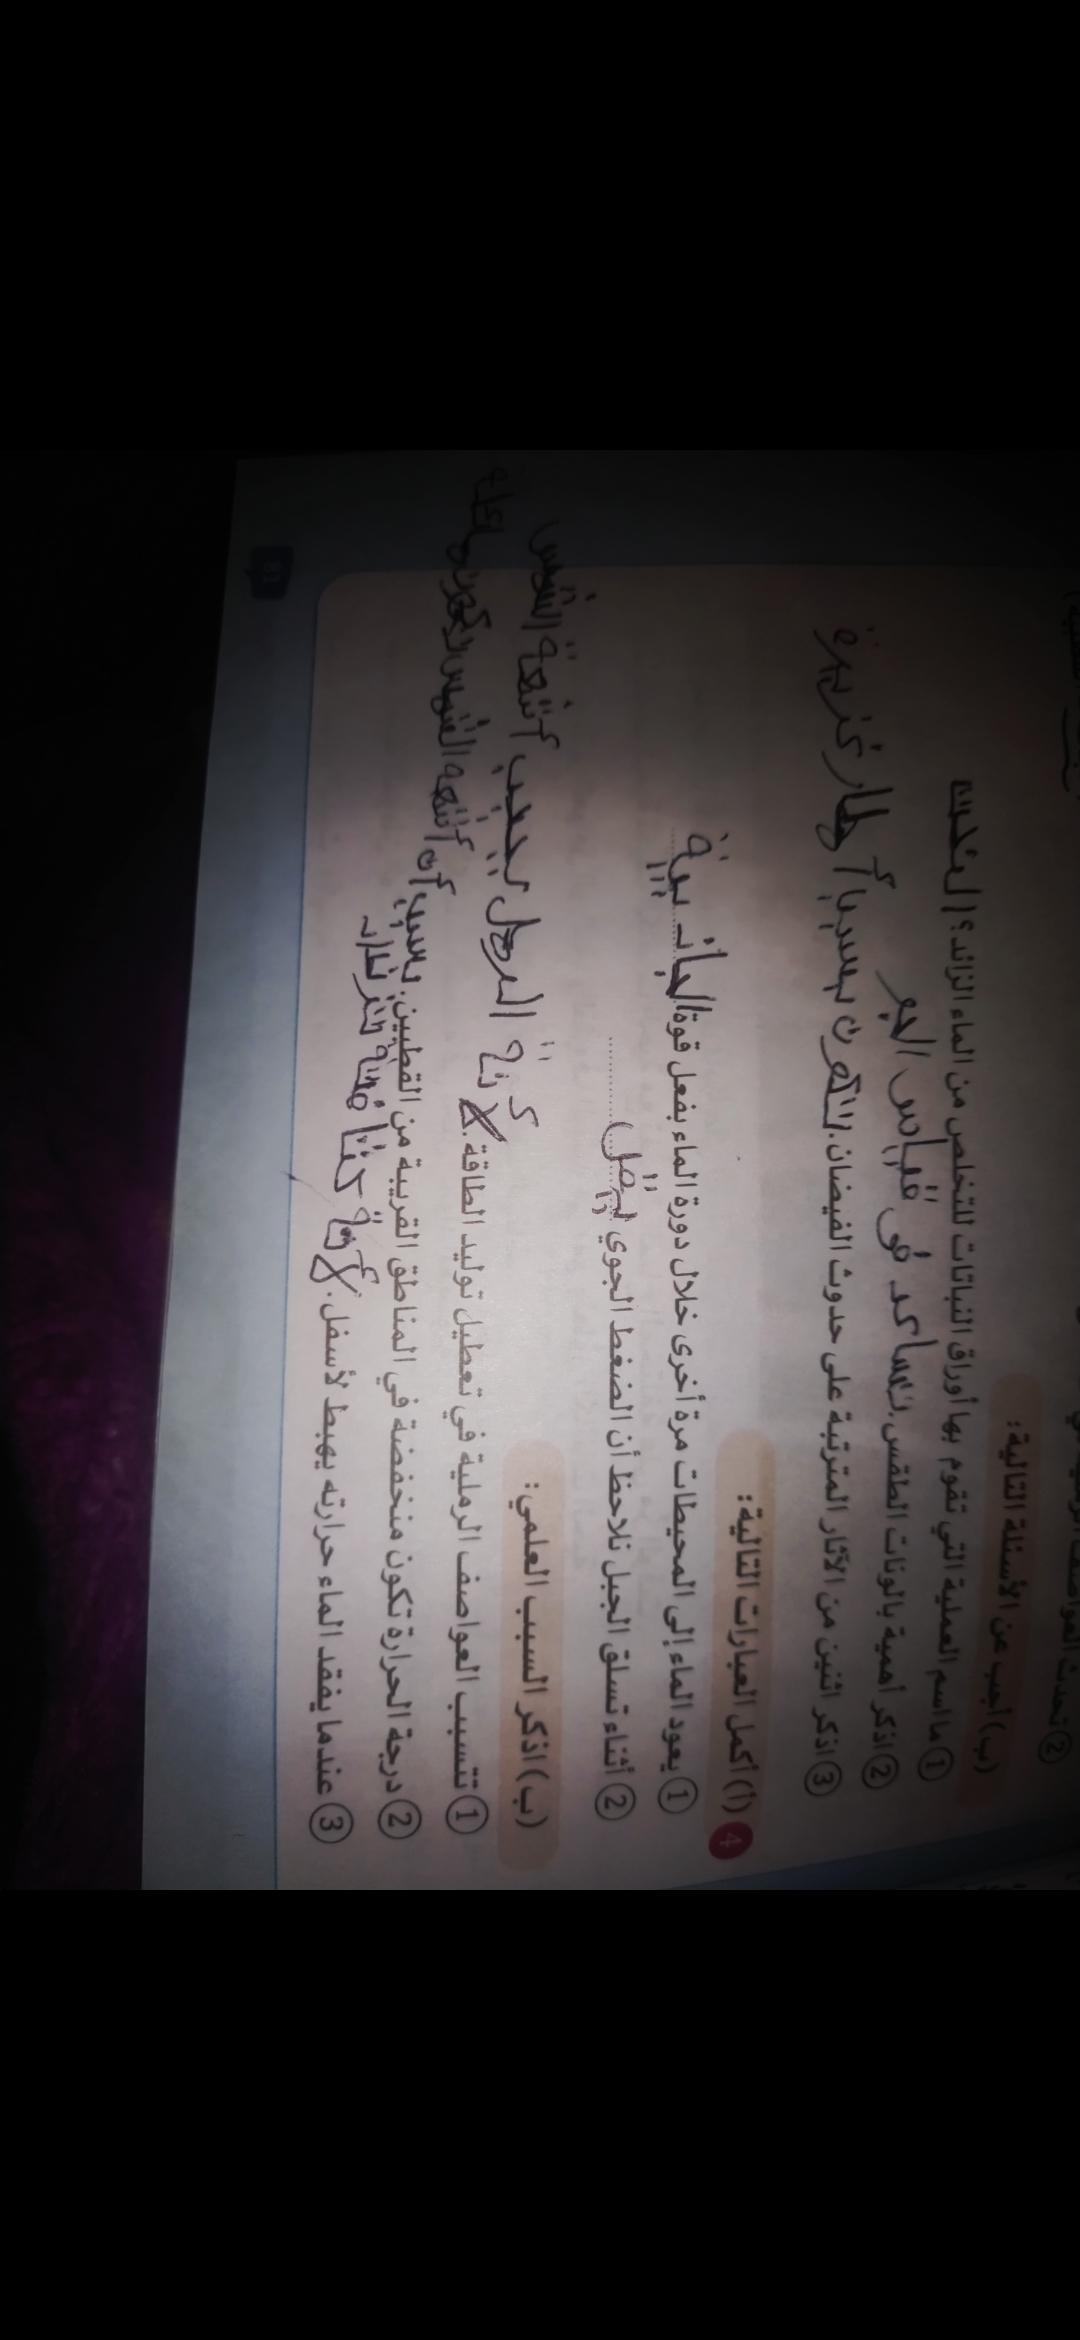 (ب) أجب عن الأسئلة التالية:
① ما اسم العملية التي تقوم بها أوراق النباتات للتخلص من الماء الزائد؟ النتح
② اذكر أهمية بالونات الطقس. تساعد في قياس الجو
③ اذكر اثنين من الآثار المترتبة على حدوث الفيضان. بسبب أمطار غزيرة
4 (أ) أكمل العبارات التالية:
① يعود الماء إلى المحيطات مرة أخرى خلال دورة الماء بفعل قوة الجاذبية
② أثناء تسلق الجبل نلاحظ أن الضغط الجوي يقل
(ب) اذكر السبب العلمي:
① تتسبب العواصف الرملية في تعطيل توليد الطاقة. لأنه الرمال يحجب أشعة الشمس
② درجة الحرارة تكون منخفضة في المناطق القريبة من القطبين. بسبب أن أشعة الشمس تكون مائلة
③ عندما يفقد الماء حرارته يهبط لأسفل. لأن
81